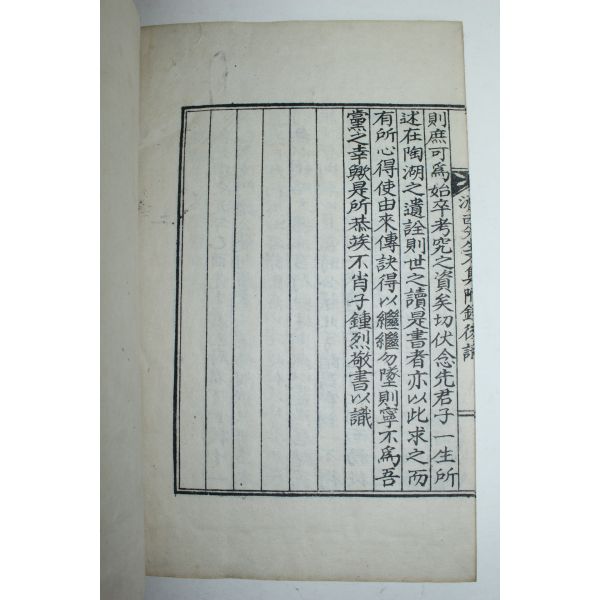 先生文集附錄後識
則庶可爲始卒考究之資矣切伏念先君子一生所
述在陶湖之遺詮則世之讀是書者亦以此求之而
有所心得使由來傳訣得以繼繼勿墜則寧不爲吾
黨之幸歟是所恭竢不肖子鍾烈敬書以識